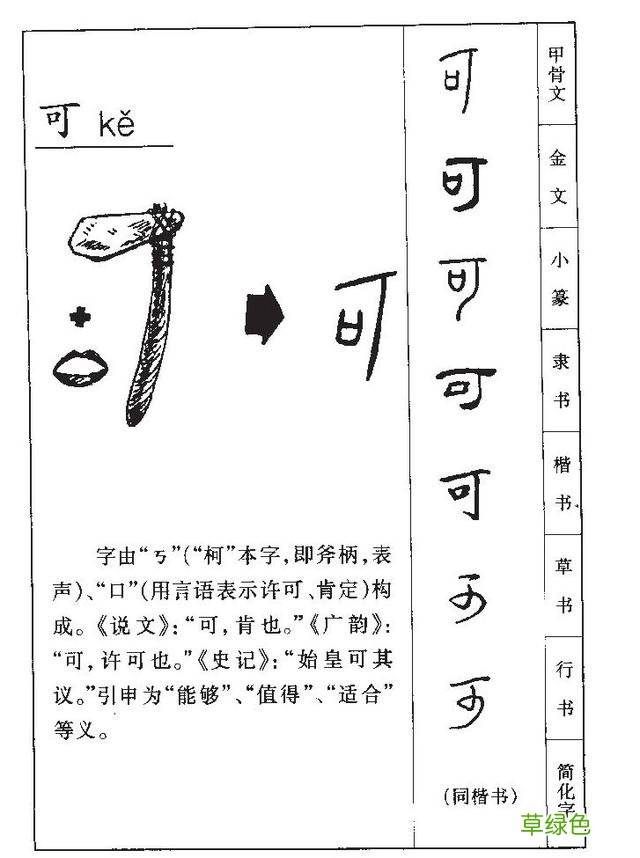 可 kě
可
字由“ㄎ”(“柯”本字,即斧柄,表
声)、“口”(用言语表示许可、肯定)构
成。《说文》:“可,肯也。”《广韵》:
“可,许可也。”《史记》:“始皇可其
议。”引申为“能够”、“值得”、“适合”
等义。
可 甲骨文
可 金文
可 小篆
可 隶书
可 楷书
可 草书
可 行书
(同楷书) 简化字
草绿色